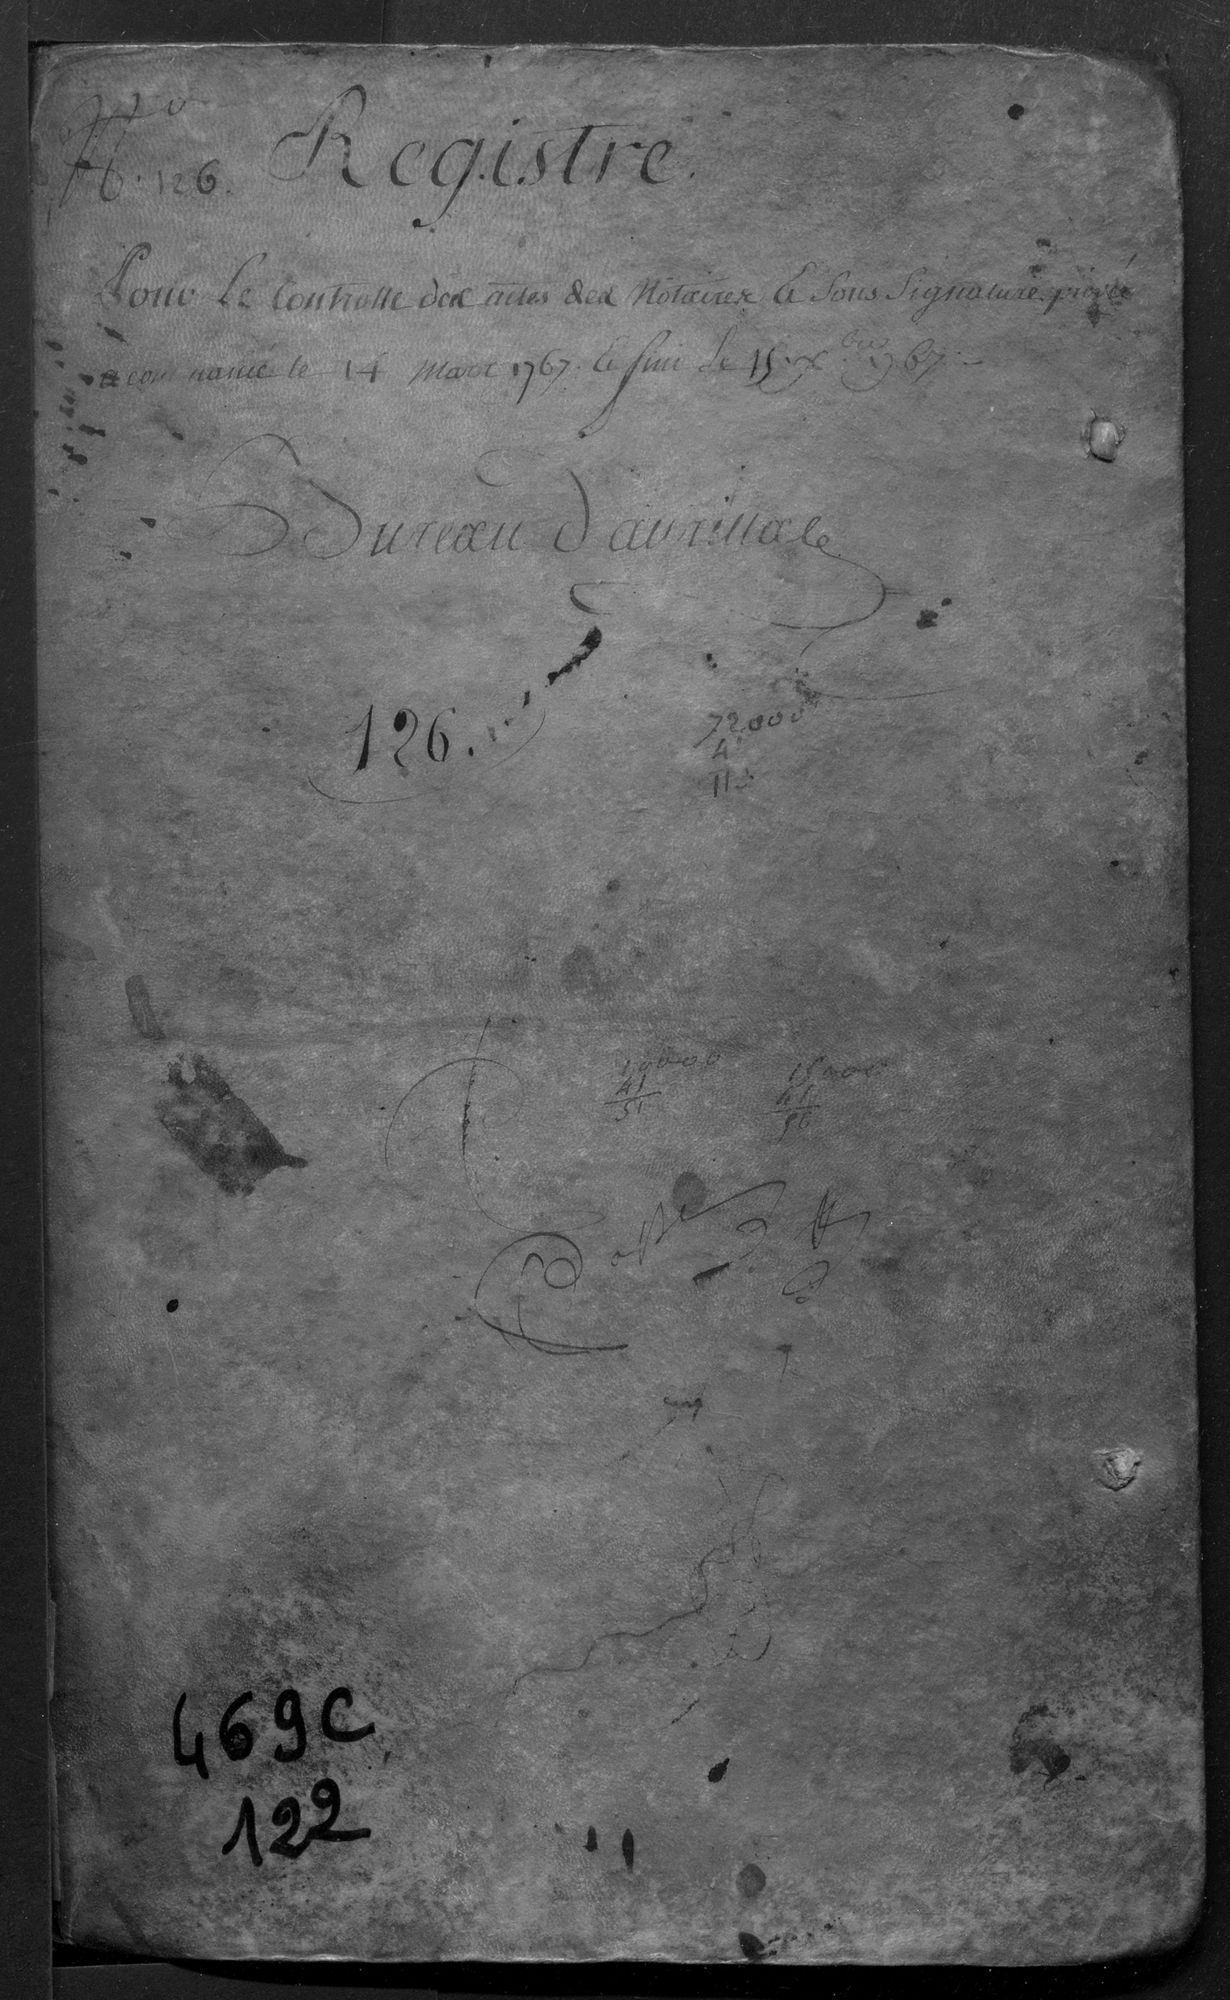 N.º 126. Registre.
Pour Le Controlle des actes des Notaires & sous signature privée
a commancé le 14 Mars 1767. & fini le 15 Xbre 1767.
Bureau d'aurillac
126.
72000
4
11
10000
41
51
15000
41
56
469C
122